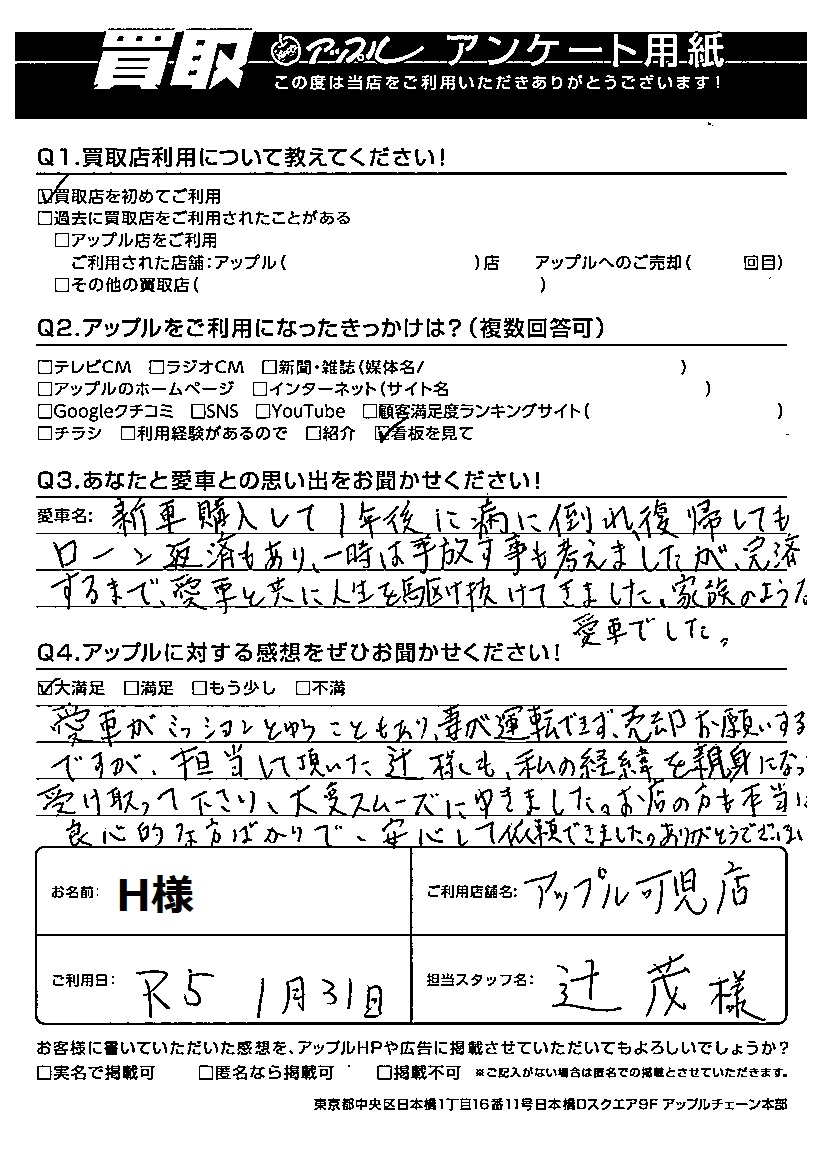 買取 アップル アンケート用紙
この度は当店をご利用いただきありがとうございます！
Q1.買取店利用について教えてください！
☑買取店を初めてご利用
□過去に買取店をご利用されたことがある
□アップル店をご利用
ご利用された店舗：アップル（　　　）店　アップルへのご売却（　　回目）
□その他の買取店（　　　）
Q2.アップルをご利用になったきっかけは？（複数回答可）
□テレビCM　□ラジオCM　□新聞・雑誌（媒体名/　　　）
□アップルのホームページ　□インターネット（サイト名　　　）
□Googleクチコミ　□SNS　□YouTube　□顧客満足度ランキングサイト（　　　）
□チラシ　□利用経験があるので　□紹介　☑看板を見て
Q3.あなたと愛車との思い出をお聞かせください！
愛車名：新車購入して1年後に病に倒れ、復帰しても
ローン返済もあり、一時は手放す事も考えましたが、完済
するまで、愛車と共に人生を駆け抜けてきました、家族のような
愛車でした。
Q4.アップルに対する感想をぜひお聞かせください！
☑大満足　□満足　□もう少し　□不満
愛車がミッションとゆうこともあり、妻が運転できず、売却お願いする
ですが、担当して頂いた辻様にも、私の経緯を親身になっ
受け取って下さり、大変スムーズにゆきました。お店の方も本当に
良心的な方ばかりで、安心して依頼できました。ありがとうございまし
お名前：H様
ご利用店舗名：アップル可児店
ご利用日：R5 1月31日
担当スタッフ名：辻 茂様
お客様に書いていただいた感想を、アップルHPや広告に掲載させていただいてもよろしいでしょうか？
□実名で掲載可　□匿名なら掲載可　□掲載不可　※ご記入がない場合は匿名での掲載とさせていただきます。
東京都中央区日本橋1丁目16番11号日本橋Dスクエア9F アップルチェーン本部